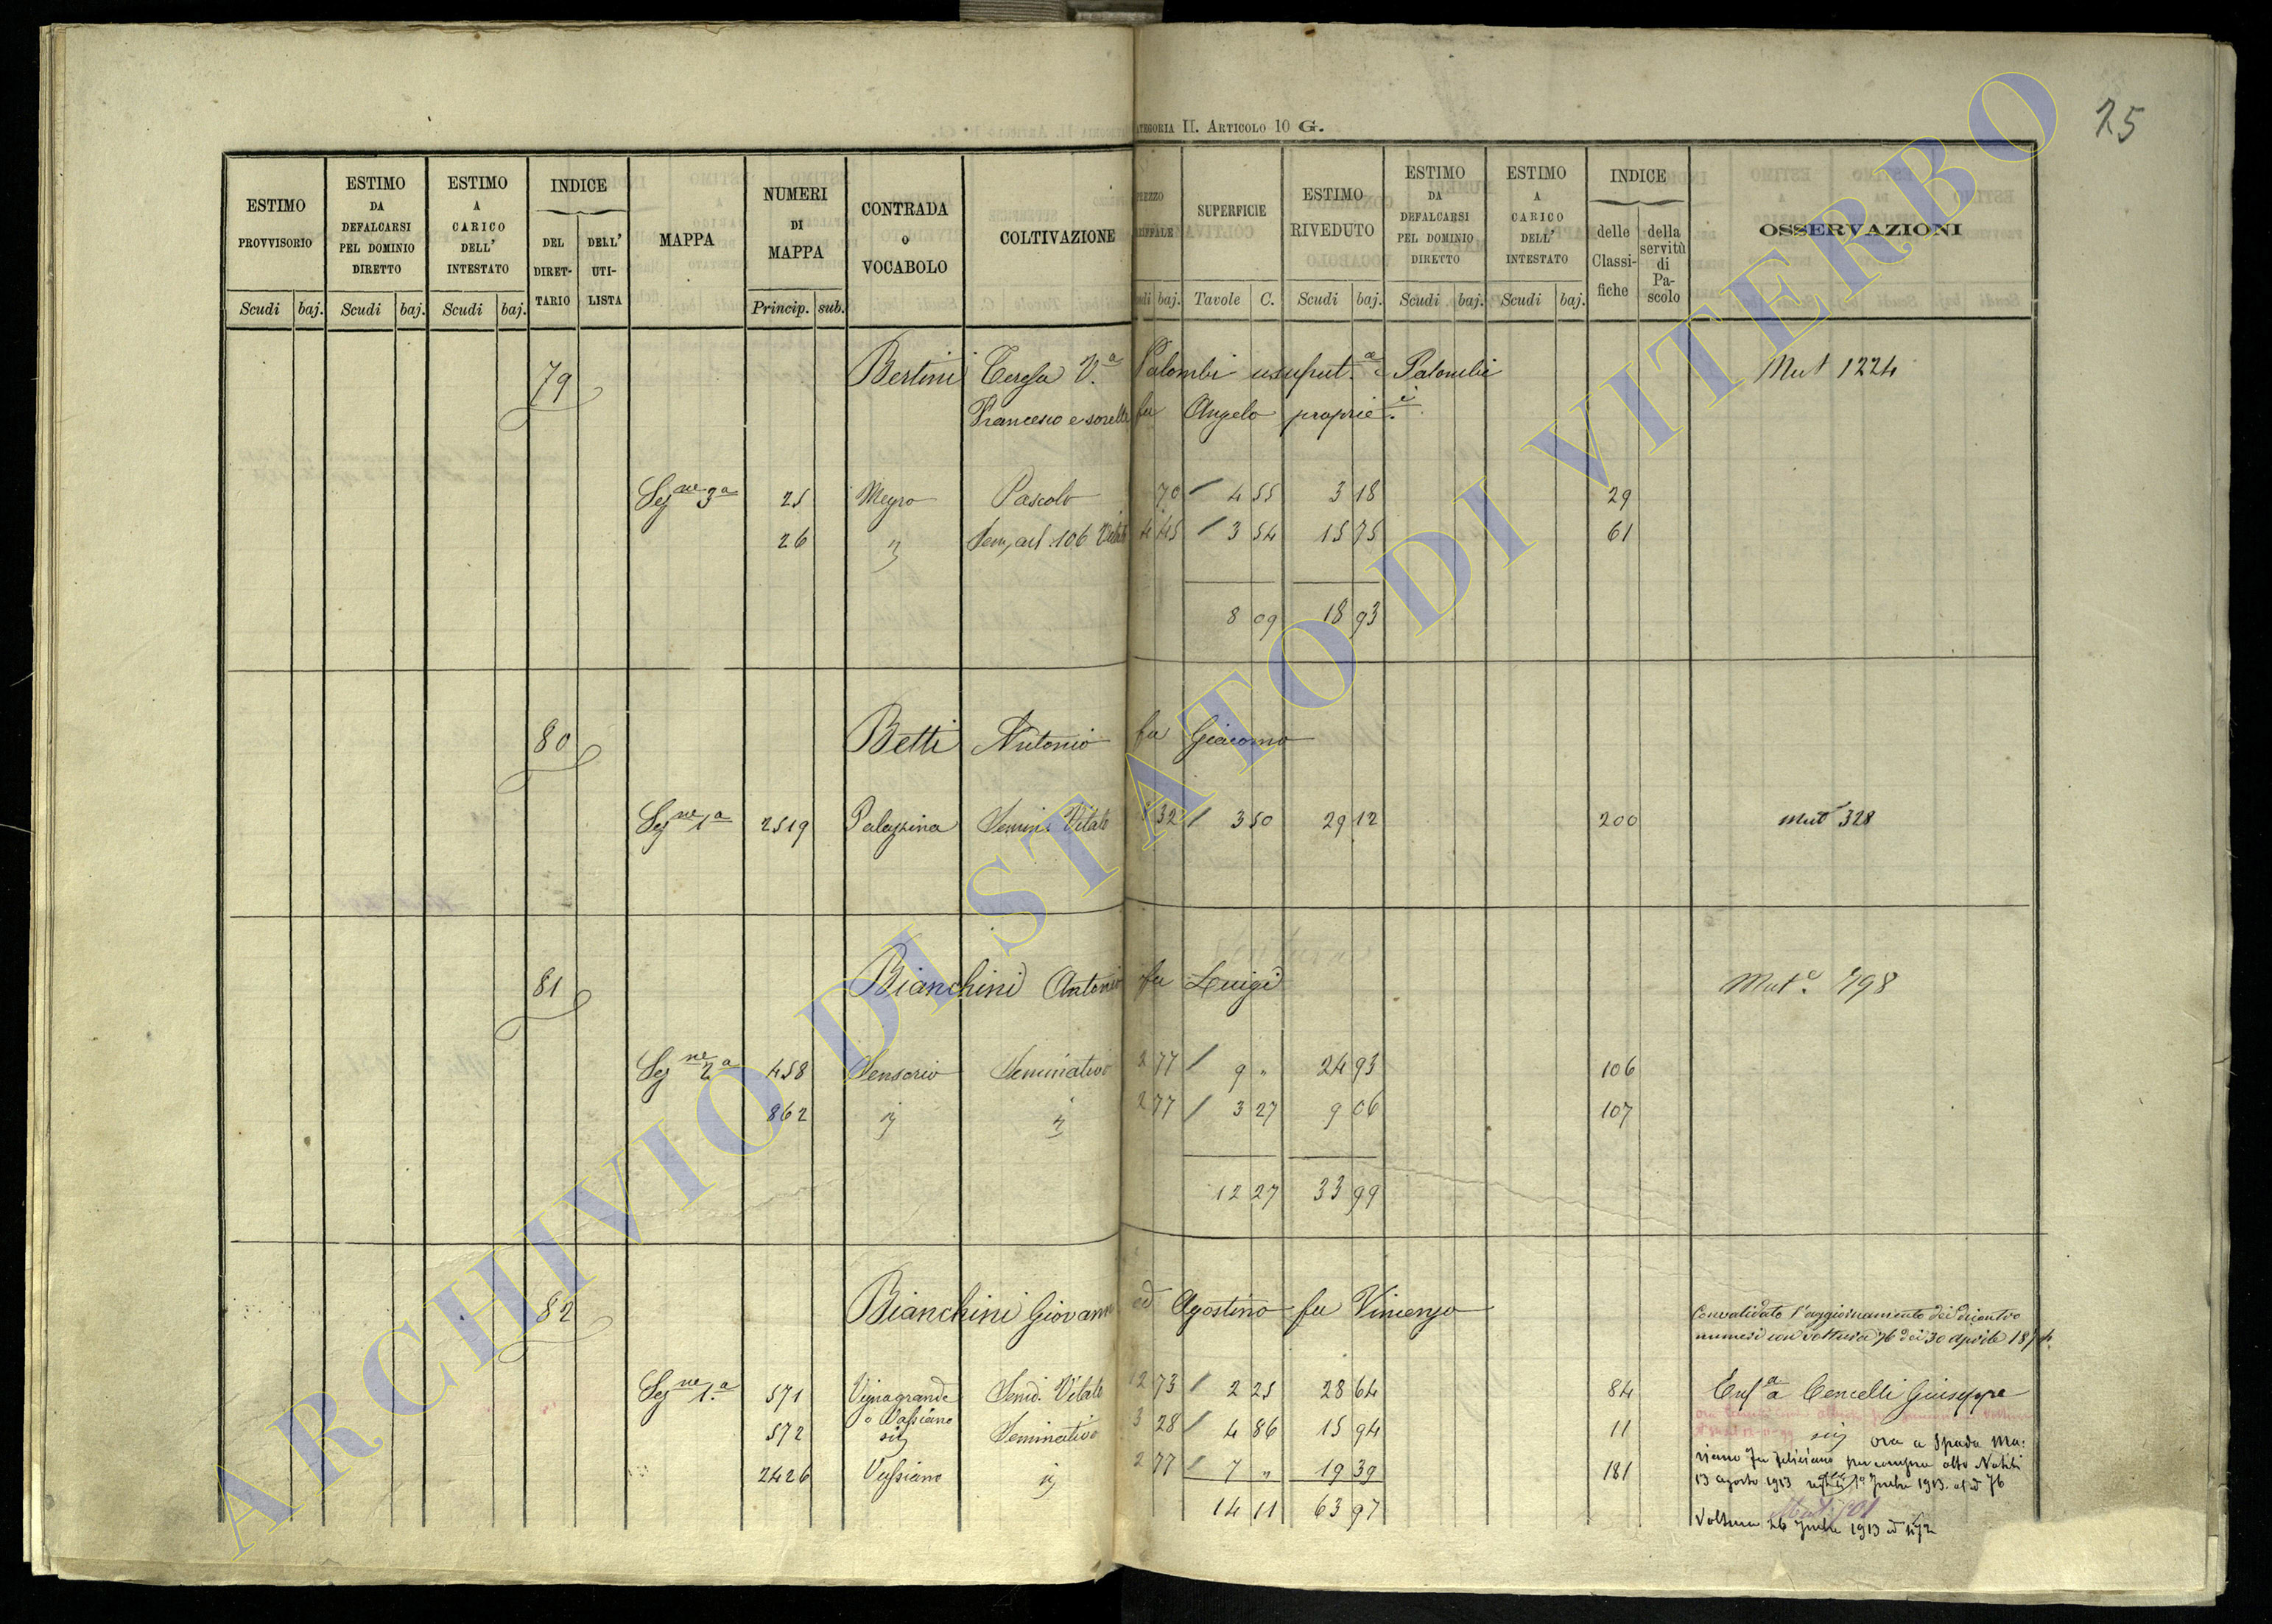 25
CATEGORIA II. ARTICOLO 10 G.
ESTIMO PROVVISORIO
ESTIMO DA DEFALCARSI PEL DOMINIO DIRETTO
ESTIMO A CARICO DELL' INTESTATO
INDICE
DEL DIRETTARIO
DELL' UTILISTA
MAPPA
NUMERI DI MAPPA
CONTRADA o VOCABOLO
COLTIVAZIONE
SUPERFICIE
ESTIMO RIVEDUTO
ESTIMO DA DEFALCARSI PEL DOMINIO DIRETTO
ESTIMO A CARICO DELL' INTESTATO
INDICE
delle Classifiche
della servitù di Pascolo
OSSERVAZIONI
Scudi baj. Scudi baj. Scudi baj. Princip. sub. baj. Tavole C. Scudi baj. Scudi baj. Scudi baj.
79 Bertini Teresa V.a Palombi usufrut. e Palombi Mut 1224
Francesco e sorelle fu Angelo proprie.i
Sez ne 3a 25 Pascolo 70 4 55 3 18 29
26 106 4 45 3 54 15 75 61
8 09 18 93
80 Betti Antonio fu Giacomo
Sez ne 1a 2519 Palazzina Semin. Vitato 8 32 3 50 29 12 200 Mut 328
81 Bianchini Antonio fu Luigi Mut.e 798
Sez ne 2a 458 Seminativo 2 77 9 " 24 93 106
862 2 77 3 27 9 06 107
12 27 33 99
82 Bianchini Giovanni ed Agostino fu Vincenzo
Convalidato l'aggiornamento dei
voltura 76 dei 30 aprile
Sez ne 1.a 571 Vignagrande Semi. Vitato 12 73 2 25 28 64 84 Cencelli Giuseppe
o Vassiano
572 Seminativo 3 28 4 86 15 94 11 ora a Spada Ma:
riano fu Feliciano per compra atto
2426 Vassiano 2 77 7 " 19 39 181 13 agosto 1913 1913 al 76
14 11 63 97
Voltura 26 1913
ARCHIVIO DI STATO DI VITERBO